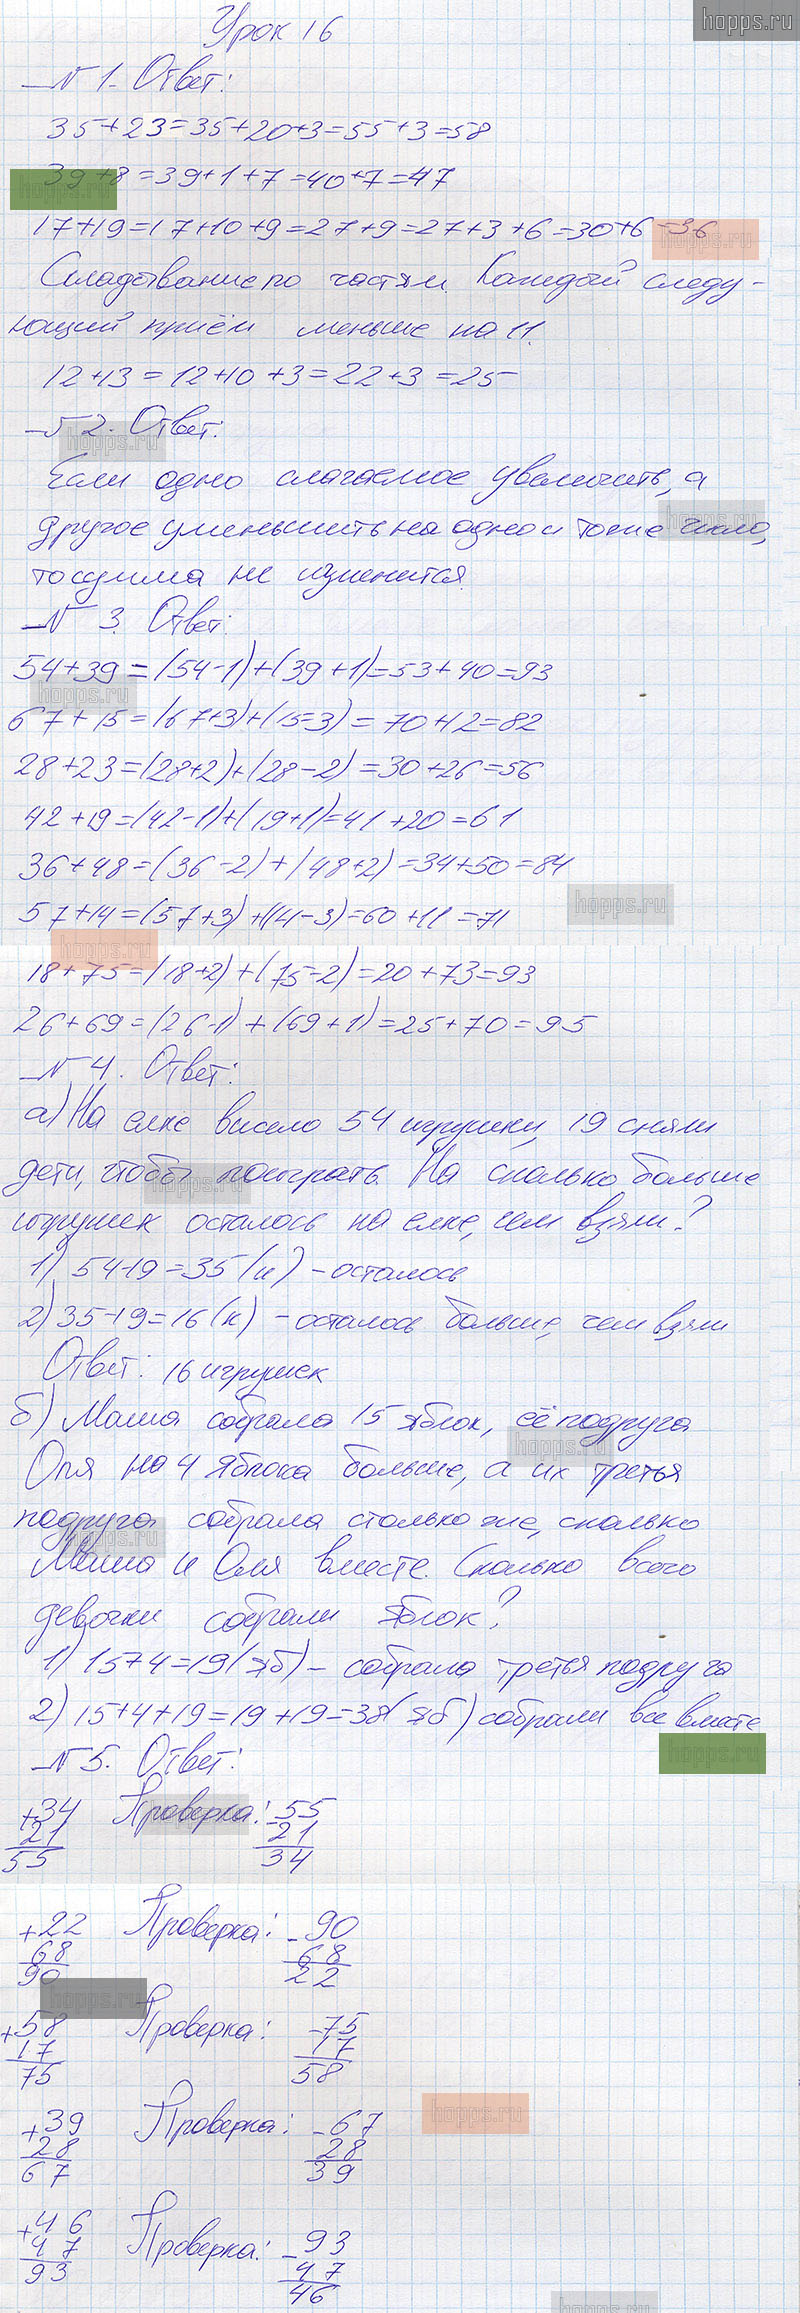 hopps.ru
Урок 16
№ 1. Ответ:
35+23=35+20+3=55+3=58
39+8=39+1+7=40+7=47
hopps.ru
17+19=17+10+9=27+9=27+3+6=30+6=36
hopps.ru
Складывание по частям. Каждый следу-
ющий приём меньше на 11.
12+13=12+10+3=22+3=25
№ 2. Ответ:
hopps.ru
Если одно слагаемое увеличить, а
другое уменьшить на одно и тоже число,
hopps.ru
то сумма не изменится.
№ 3. Ответ:
54+39=(54-1)+(39+1)=53+40=93
hopps.ru
67+15=(67+3)+(15-3)=70+12=82
28+23=(28+2)+(28-2)=30+26=56
42+19=(42-1)+(19+1)=41+20=61
36+48=(36-2)+(48+2)=34+50=84
hopps.ru
57+14=(57+3)+(14-3)=60+11=71
hopps.ru
18+75=(18+2)+(75-2)=20+73=93
26+69=(26-1)+(69+1)=25+70=95
№ 4. Ответ:
а) На елке висело 54 игрушки, 19 сняли
дети, чтобы поиграть. На сколько больше
hopps.ru
игрушек осталось на елке, чем взяли?
1) 54-19=35(и) - осталось
2) 35-19=16(и) - осталось больше, чем взяли
Ответ: 16 игрушек
б) Маша собрала 15 яблок, её подруга
hopps.ru
Оля на 4 яблока больше, а их третья
подруга собрала столько же, сколько
hopps.ru
Маша и Оля вместе. Сколько всего
девочки собрали яблок?
1) 15+4=19(яб) - собрала третья подруга
2) 15+4+19=19+19=38(яб) собрали все вместе
hopps.ru
№ 5. Ответ:
+34 Проверка: -55
hopps.ru
21 21
55 34
+22 Проверка: -90
68 68
90 22
hopps.ru
+58 Проверка: -75
17 17
75 58
hopps.ru
+39 Проверка: -67
28 28
67 39
+46 Проверка: -93
47 47
93 46
hopps.ru